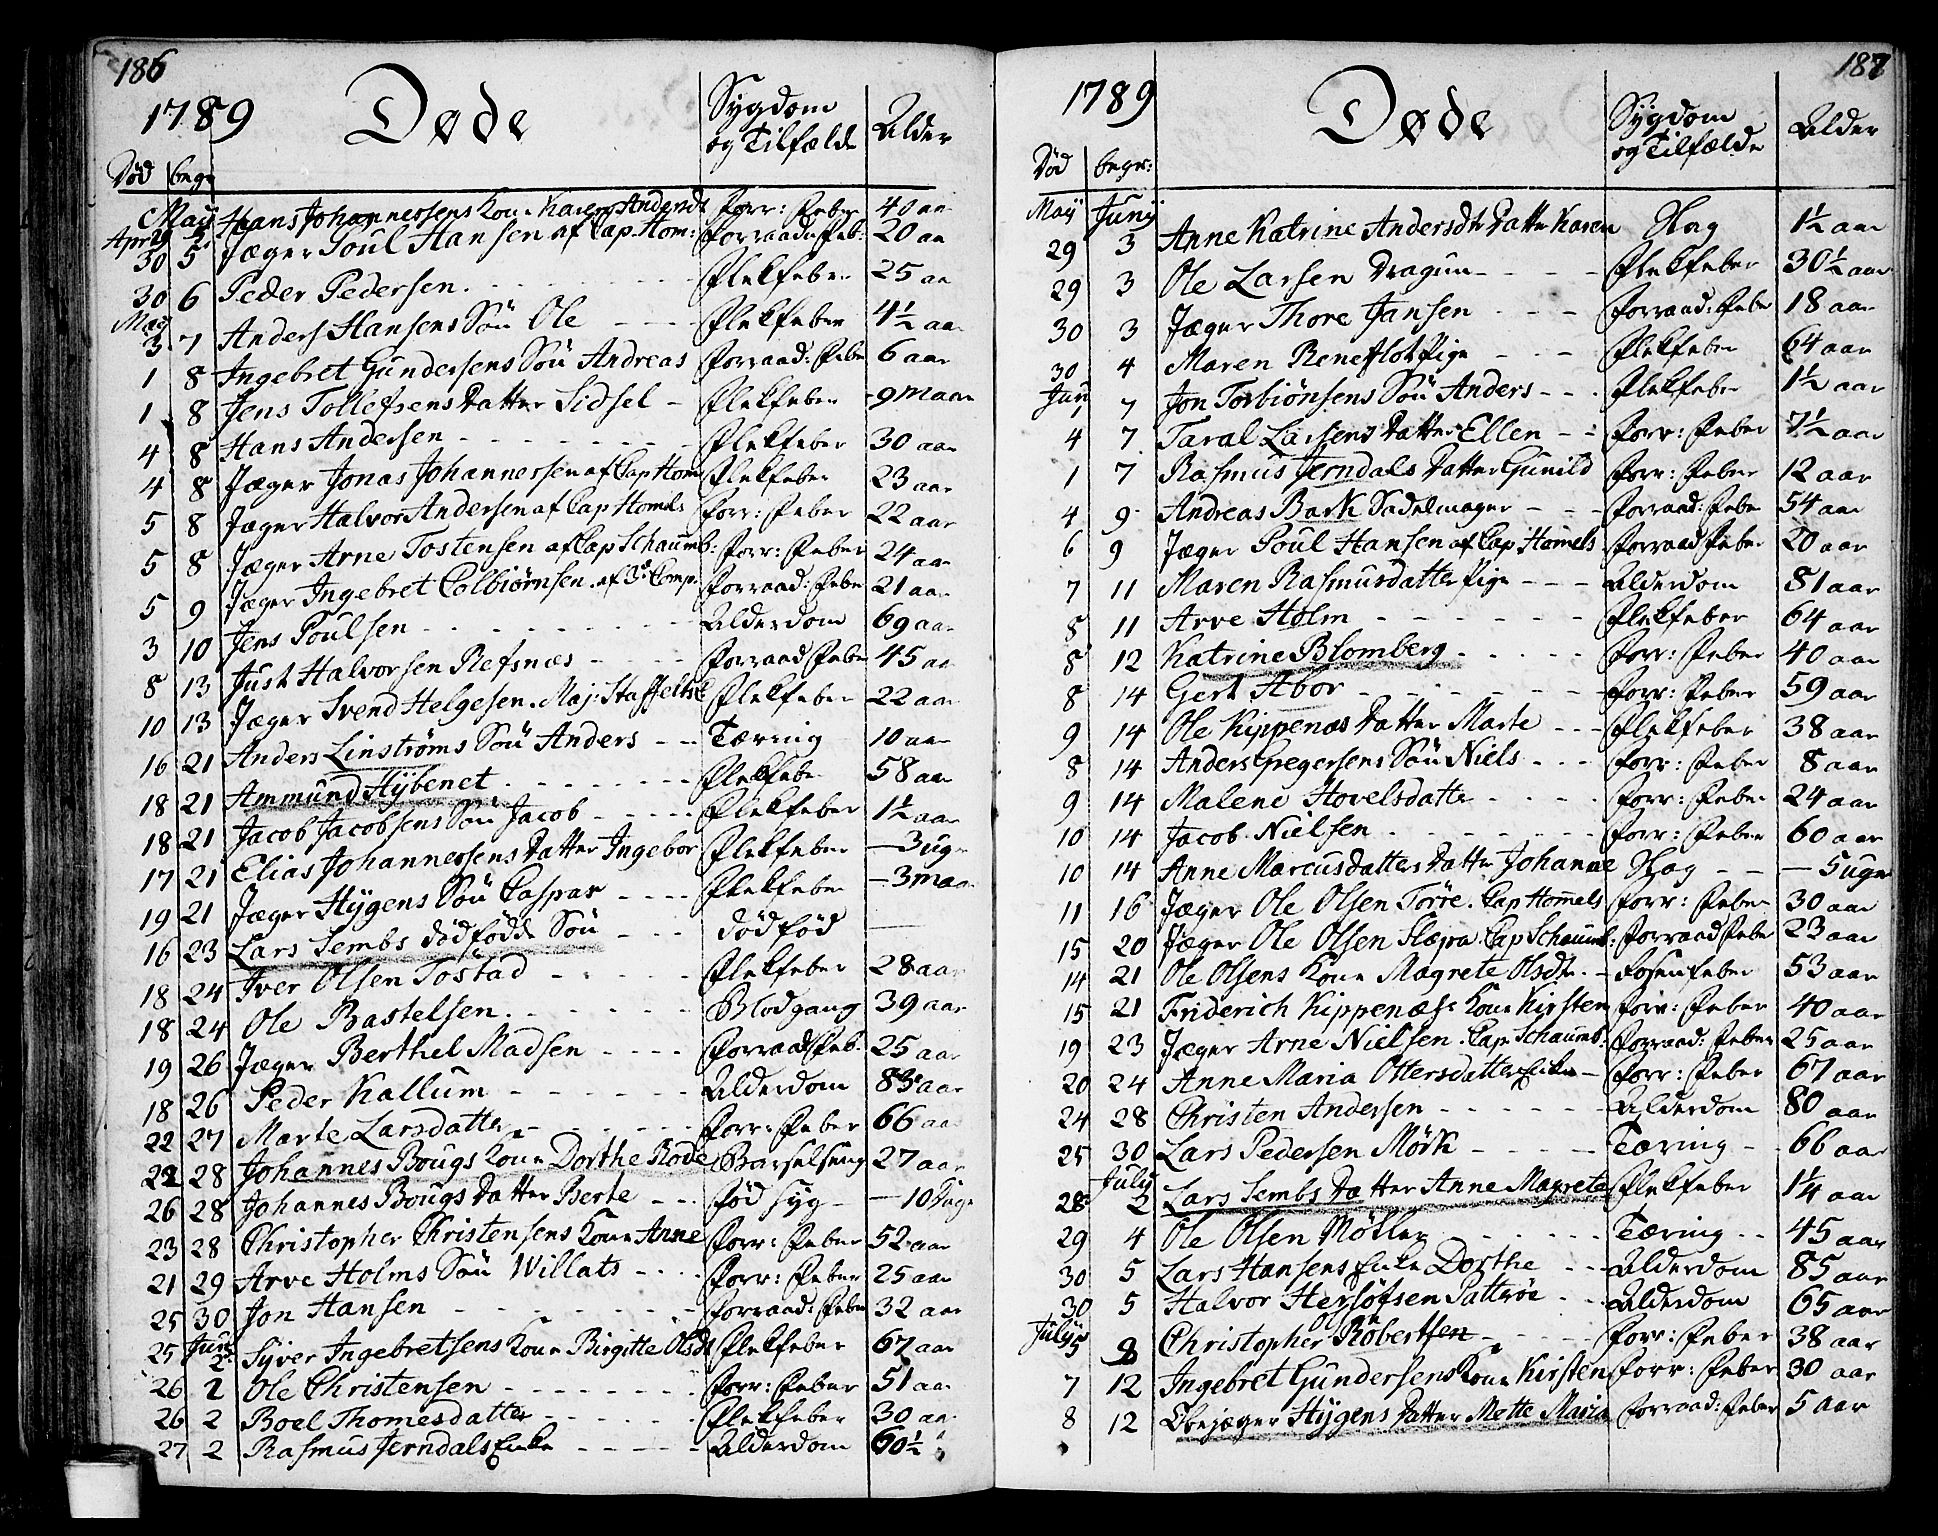 186
1789 Døde Sygdom og Tilfælde Alder
Død begr
May
Apr 29 5 Hans Johannessens Kone Karen Andersdt Forr: Feber 40 aar
30 5 Jæger Poul Hansen af Cap. Hom: Forraads Feb: 20 aar
30 6 Peder Pedersen Flekfeber 25 aar
May
3 7 Anders Hansens Søn Ole Flekfeber 4½ aar
1 8 Ingebret Gundersens Søn Andreas Forraad: Feber 6 aar
1 8 Jens Tollefsens Datter Sidsel Flekfeber 9 maan
4 8 Hans Andersen Flekfeber 30 aar
4 8 Jæger Jonas Johannessen af Cap Hom Flekfeber 23 aar
5 8 Jæger Halvor Andersen af Cap Homels Forr: Feber 22 aar
5 8 Jæger Arne Tostensen af Cap Schaumb: Forr: Feber 24 aar
5 9 Jæger Ingebret Colbiørnsen af 3d Comp. Forraad: Feber 21 aar
3 10 Jens Poulsen Alderdom 69 aar
8 13 Just Halvorsen Refsnæs Forraad Feber 45 aar
10 13 Jæger Svend Helgesen. Maj: Staffeltt Flekfeber 22 aar
16 21 Anders Linstrøms Søn Anders Tæring 10 aar
18 21 Ammund Hÿbenet Flekfeber 58 aar
18 21 Jacob Jacobsens Søn Jacob Flekfeber 1½ aar
17 21 Elias Johannessens Datter Ingebor Flekfeber 3 uger
19 21 Jæger Hÿgens Søn Caspar Flekfeber 3 maan
16 23 Lars Sembs dødfødde Søn dødfød
18 24 Iver Olsen Tostad Flekfeber 28 aar
18 24 Ole Bastelsen Blodgang 39 aar
19 26 Jæger Berthel Madsen Forraads Feb: 25 aar
18 26 Peder Kallum Alderdom 83 aar
22 27 Marte Larsdatter Forr: Feber 66 aar
22 28 Johannes Bougs Kone Dorthe Rode Barselseng 27 aar
26 28 Johannes Bougs Datter Berte fød syg 10 Dage
23 28 Christopher Christensens Kone Anne Forr: Feber 52 aar
21 29 Arve Holms Søn Willats Forr: Feber 25 aar
25 30 Jon Hansen Forraad: Feber 32 aar
Juni
25 2 Syver Ingebretsens Kone Birgitte Olsdt Flekfeber 67 aar
26 2 Ole Christensen Forr: Feber 51 aar
26 2 Boel Thomesdatter Flekfeber 30 aar
27 2 Rasmus Jerndals Enke Alderdom 60½
187
1789 Døde Sygdom og Tilfælde Alder
Død begr:
Maÿ Junÿ
29 3 Anne Katrine Andersdtr Datter Karen Slag 1½ aar
29 3 Ole Larsen Dragun Flekfeber 30½ aar
30 3 Jæger Thore Jansen Forraad: Feber 18 aar
30 4 Maren Reneflot Pige Flekfeber 64 aar
Jun
1 7 Jon Torbiønsens Søn Anders Flekfeber 1½ aar
4 7 Taral Larsens Datter Ellen Forr: Feber 7½ aar
1 7 Rasmus Jerndals Datter Gunild Forr: Feber 12 aar
4 9 Andreas Bark Sadelmager Forraad: Feber 54 aar
6 9 Jæger Poul Hansen af Cap Homels Forraad Feber 20 aar
7 11 Maren Rasmusdatter Pige Alderdom 81 aar
8 11 Arve Holm Flekfeber 64 aar
8 12 Katrine Blomberg Forr: Feber 40 aar
8 14 Gert Abor Forr: Feber 59 aar
9 14 Ole Kippenæs Datter Marte Flekfeber 38 aar
8 14 Anders Gregersens Søn Niels Forr: Feber 8 aar
9 14 Malene Hovelsdatter Forr: Feber 24 aar
10 14 Jacob Nielsen Forr: Feber 60 aar
10 14 Anne Marcusdatters Datter Johanne Slag 5 uger
11 16 Jæger Ole Olsen Torre. Cap Homels Forr: Feber 30 aar
15 20 Jæger Ole Olsen Slæpa. Cap Schaumb: Forraad Feber 23 aar
14 21 Ole Olsens Kone Magrete Olsdtr. Rosenfeber 53 aar
15 21 Friderich Kippenæss Kone Kirsten Forr: Feber 40 aar
19 23 Jæger Arne Nielsen. Cap. Schaumb: Forraad: Feber 25 aar
20 24 Anne Maria Ottersdatter Enke Forr: Feber 67 aar
24 28 Christen Andersen Alderdom 80 aar
25 30 Lars Pedersen Mørk Tæring 66 aar
Julÿ
28 2 Lars Sembs Datter Anne Magrete Flekfeber 1¼ aar
29 4 Ole Olsen Møller Tæring 45 aar
30 5 Lars Hansens Enke Dorthe Alderdom 85 aar
30 5 Halvor Hersøfsen Pattrøe Alderdom 65 aar
Julÿ
5 8 Christopher Robertsen Forr: Feber 38 aar
7 12 Ingebret Gundersens Kone Kirsten Forr: Feber 30 aar
8 12 Obejæger Hÿgens Datter Mette Maria Forraad: Feber 5 aar